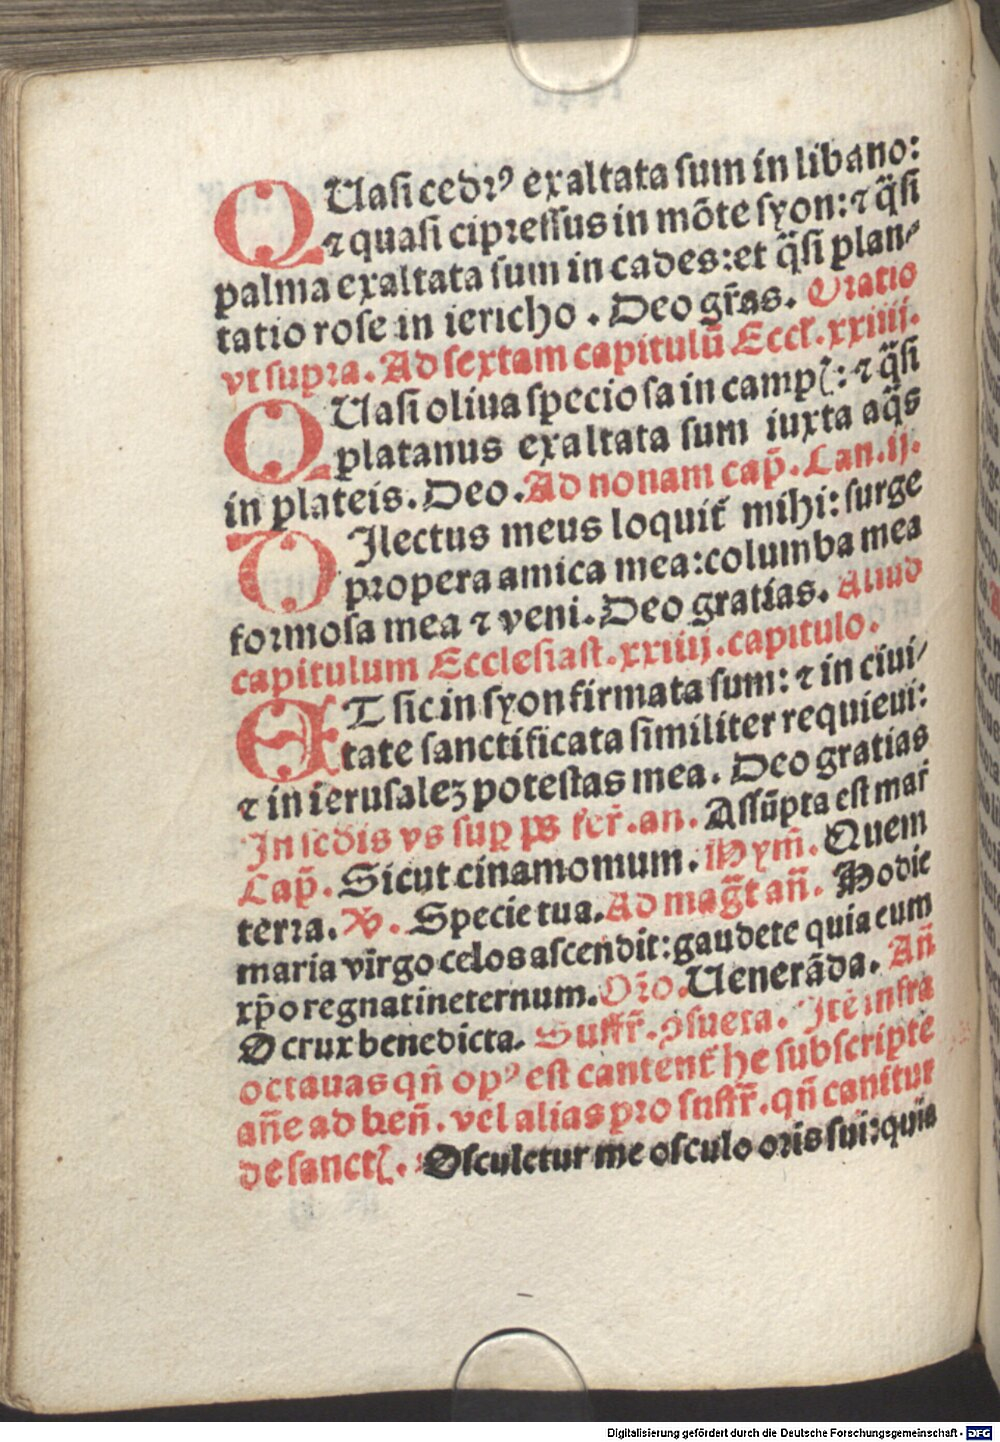 QUasi cedrꝰ exaltata sum in libano:
⁊ quasi cipressus in mõte syon: ⁊ q̈si
palma exaltata sum in cades: et q̈si plan⸗
tatio rose in iericho. Deo gr̃as. Oratio
vt supra. Ad sextam capitulũ Eccľ. xxiiij.
QUasi oliua speciosa in campꝭ: ⁊ q̈si
platanus exaltata sum iuxta aq̈s
in plateis. Deo. Ad nonam cap̃. Can. ij.
DIlectus meus loquit᷑ mihi: surge
propera amica mea: columba mea
formosa mea ⁊ veni. Deo gratias. Aliud
capitulum Ecclesiast. xxiiij. capitulo.
ET sic in syon firmata sum: ⁊ in ciui⸗
tate sanctificata similiter requieui:
⁊ in ierusaleꝫ potestas mea. Deo gratias
In scďis vs̄ suꝑ ps̄ fer̃. an. Assũpta est mar̃
Cap̃. Sicut cinamomum. Hym̃. Quem
terra. ℣. Specie tua. Ad mag̃t añ. Hodie
maria virgo celos ascendit: gaudete quia cum
xp̃o regnat ineternum. Or̃o. Venerãda. Añ
O crux benedicta. Suffr̃. ꝯsueta. Itẽ infra
octauas qñ opꝰ est cantent᷑ he subscripte
añe ad beñ. vel alias pro suffr̃. qñ canitur
de sanctꝭ. Osculetur me osculo oris sui: quia
Digitalisierung gefördert durch die Deutsche Forschungsgemeinschaft - DFG